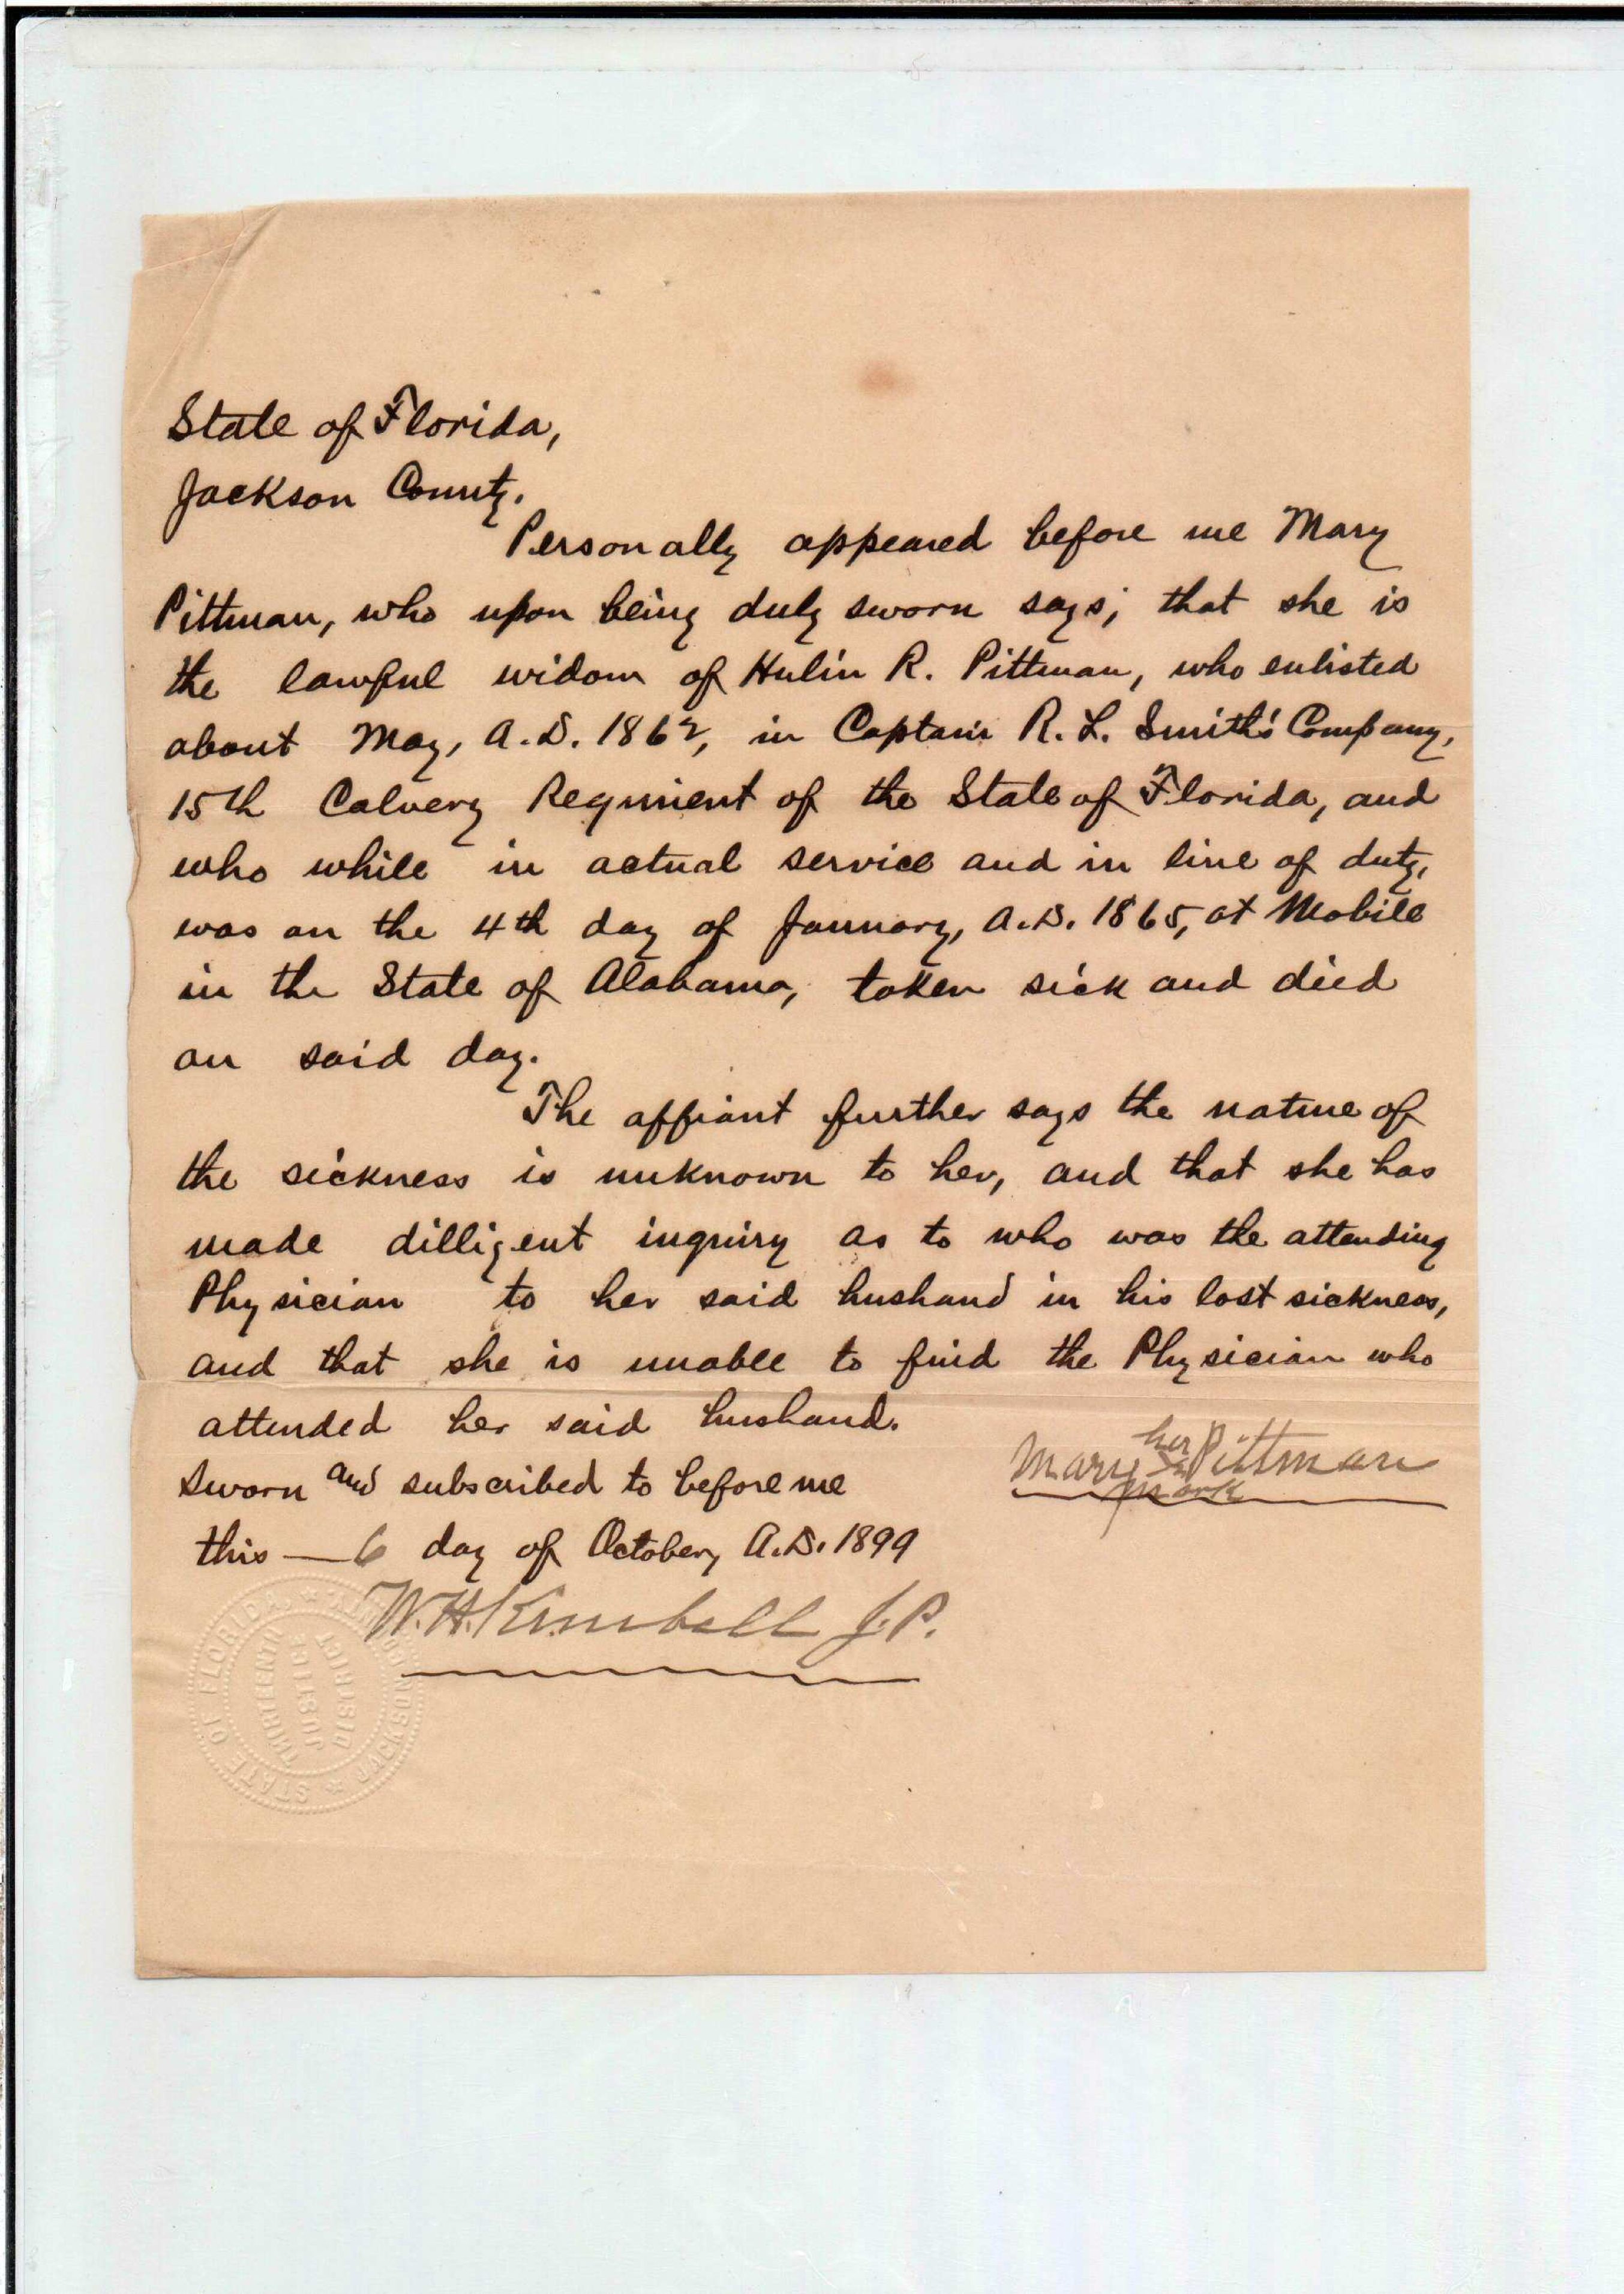 State of Florida,
Jackson County.
Personally appeared before me Mary
Pittman, who upon being duly sworn says; that she is
the lawful widow of Hulin R. Pittman, who enlisted
about May, A.D. 1862, in Captain R. L. Smith's Company,
15th Calvery Regiment of the State of Florida, and
who while in actual service and in line of duty,
was on the 4th day of January, A.D. 1865, at Mobile
in the State of Alabama, taken sick and died
on said day.
The affiant further says the nature of
the sickness is unknown to her, and that she has
made dilligent inquiry as to who was the attending
Physician to her said husband in his last sickness,
and that she is unable to find the Physician who
attended her said husband.
her
Mary x Pittman
mark
Sworn and subscribed to before me
this — 6 day of October, A.D. 1899
W. H. Kimball J.P.
STATE OF FLORIDA, JACKSON
THIRTEENTH
JUSTICE
DISTRICT